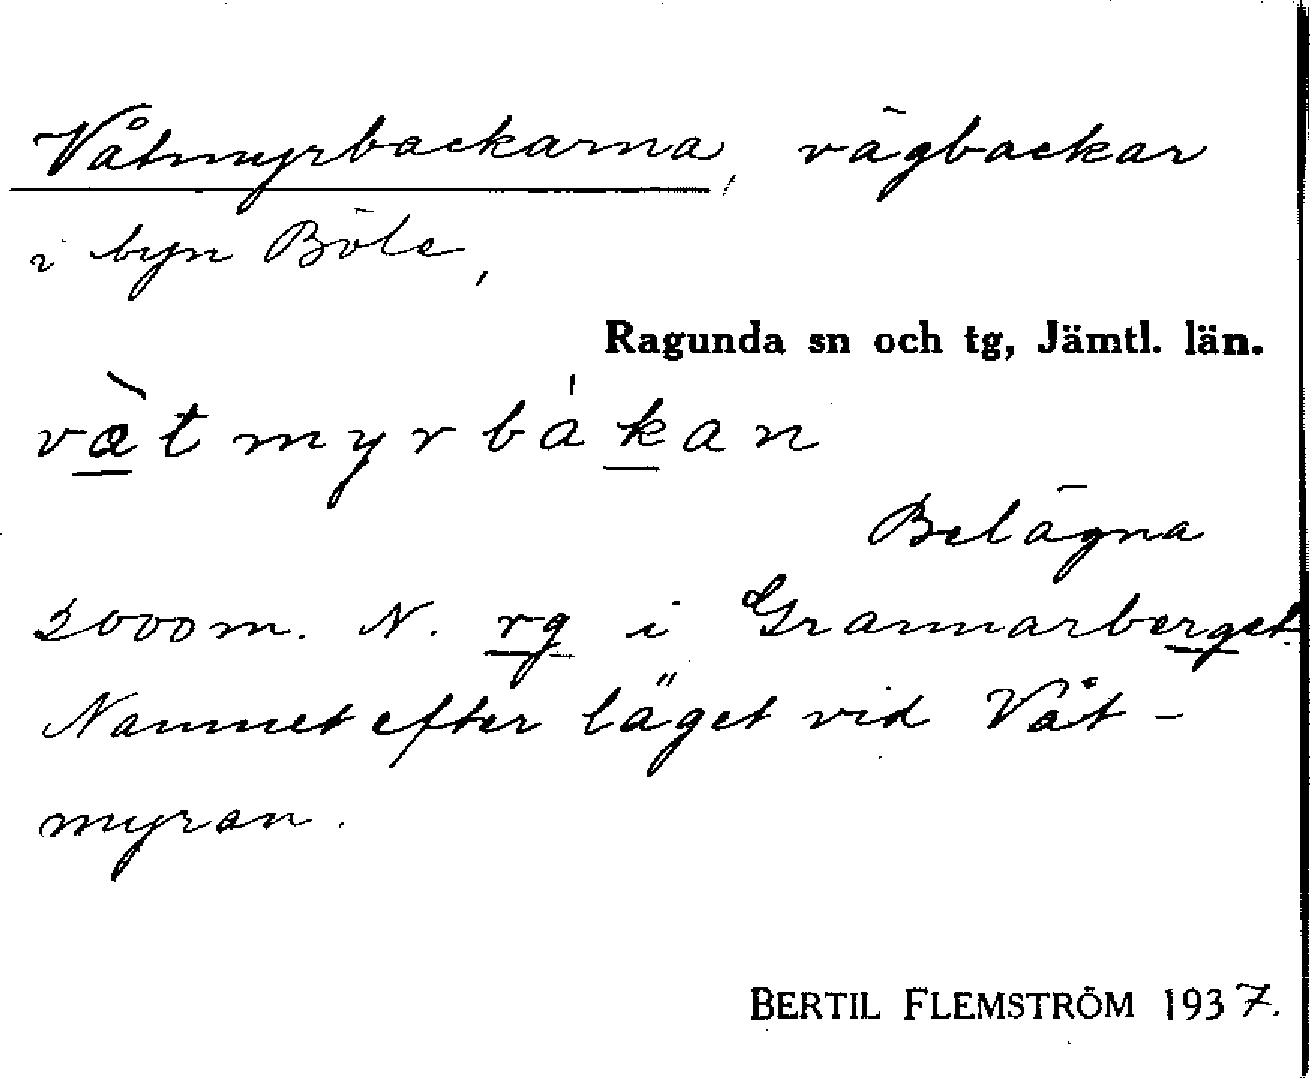 Våtmyrbackarna, vägbackar
i byn Böle,
Ragunda sn och tg, Jämtl. län.
våtmyrbákan
Belägna
2000 m. N. rg i Grannarberget.
Namnet efter läget vid Våt-
myran.
BERTIL FLEMSTRÖM 1937.